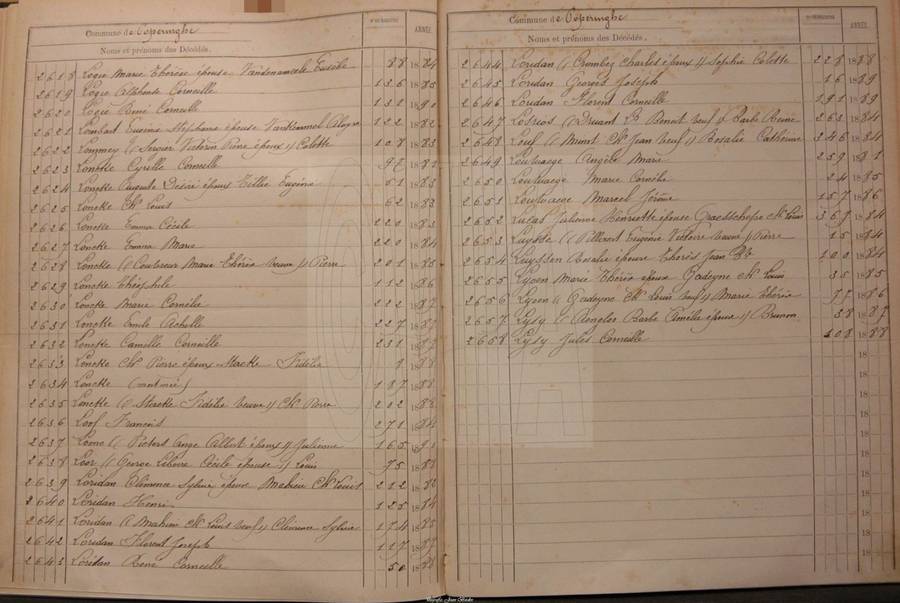 Commune de Poperinghe
Nos D'ORDRE ANNÉE
Noms et prénoms des Décédés.
2618 Logie Marie Thérèse épouse Vandenameele Eusèbe 88 1884
2619 Logie Alphonse Corneille 136 1885
2620 Logie Remi Corneille 131 1890
2621 Lombart Eugénie Stéphanie épouse 122 1882
2622 Victorin Pierre époux // Colette 108 1883
2623 Loncke Cyrille Corneille 97 1882
2624 Loncke Auguste Désiré époux Tillie Eugénie 51 1883
2625 Loncke Ch Louis 62 1883
2626 Loncke Emma Cécile 220 1883
2627 Loncke Emma Marie 220 1884
2628 Loncke // Couttreur Marie Thérèse veuve // Pierre 201 1885
2629 Loncke Théophile 112 1886
2630 Loncke Marie Cornélie 222 1887
2631 Loncke Emile Achille 227 1887
2632 Loncke Camille Corneille 231 1887
2633 Loncke Ch Pierre époux Sterckx Fidélia 9 1888
2634 Loncke (mort né) 187 1888
2635 Loncke // Sterckx Fidélia veuve // Ch Pierre 202 1888
2636 Loof Francis 271 1884
2637 Ange Albert époux // Julienne 165 1881
2638 Loor // George Cécile épouse // Louis 95 1888
2639 Loridan Clémence Sylvie épouse Mahieu Ch Louis 212 1882
2640 Loridan Henri 125 1884
2641 Loridan // Mahieu Ch Louis veuf // Clémence Sylvie 174 1885
2642 Loridan Florent Joseph 117 1887
2643 Loridan René Corneille 50 1888
Commune de Poperinghe
Nos D'ORDRE ANNÉE
Noms et prénoms des Décédés.
2644 Loridan // Crombez Charles époux // Sophie Colette 228 1888
2645 Loridan Georges Joseph 16 1889
2646 Loridan Florent Corneille 191 1889
2647 Benoit veuf // Barbe Reine 263 1884
2648 Louf // Ch Jean veuf // Rosalie Catherine 346 1884
2649 Louwaege Angèle Marie 259 1881
2650 Louwaege Marie Cornélie 24 1885
2651 Louwaege Marcel Jérôme 157 1886
2652 Lucas Julienne Henriette épouse Ch Louis 367 1884
2653 Eugénie Victoire veuve // Pierre 15 1884
2654 Luyssen Rosalie épouse Thoris Jean Bte 100 1884
2655 Lyoen Marie Thérèse épouse Gadeyne Ch Louis 35 1885
2656 Lyoen // Gadeyne Ch Louis veuf // Marie Thérèse 77 1886
2657 Lysy // Barbe Amélie épouse // Brunon 38 1887
2658 Lysy Jules Corneille 208 1888